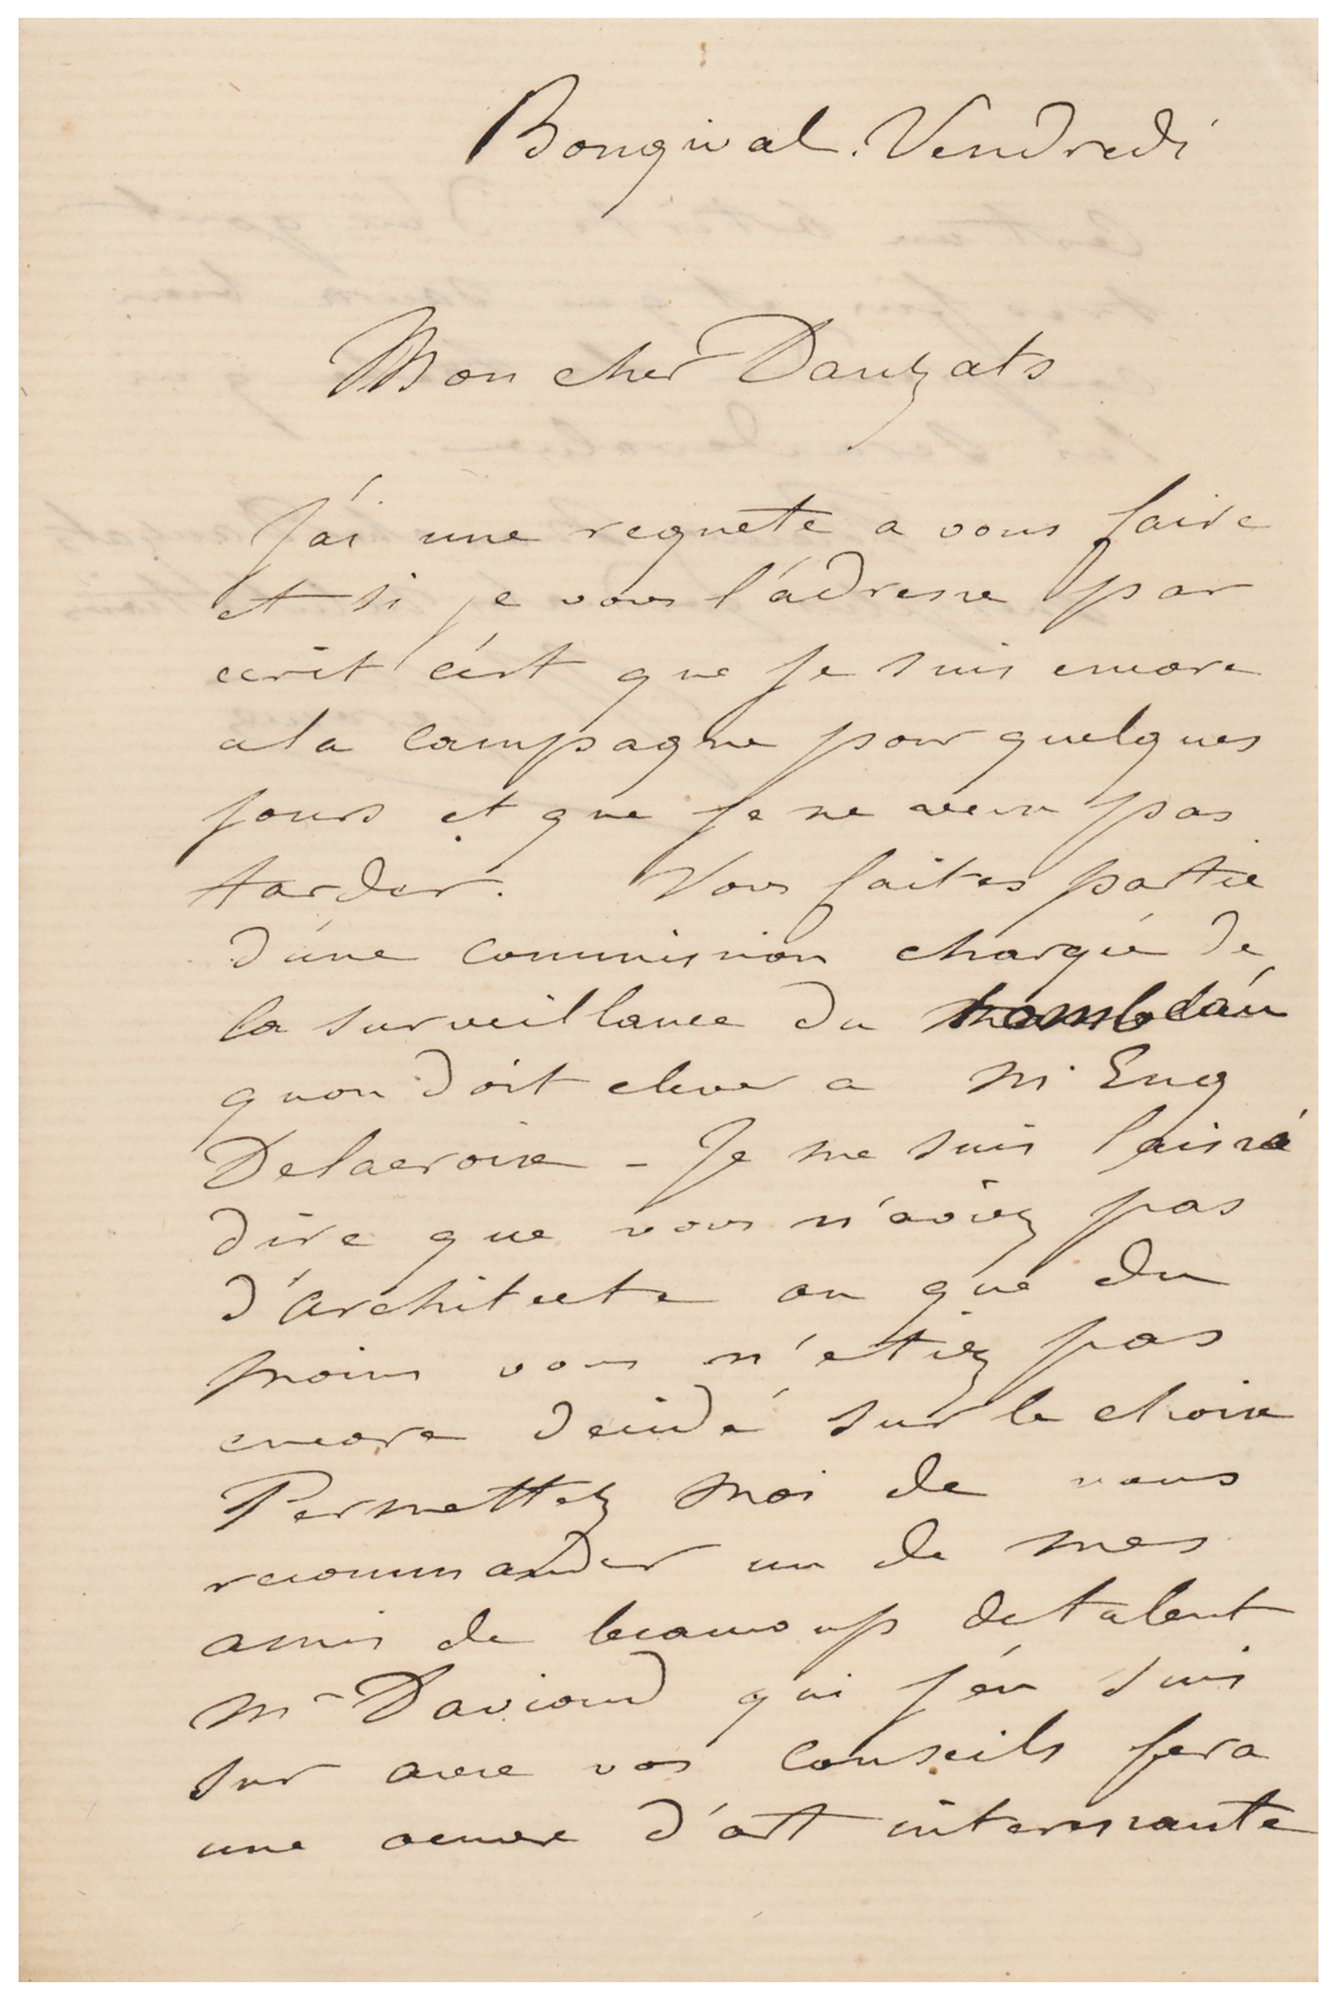 Bougival. Vendredi
Mon cher Dauzats
J'ai une requete a vous faire
et si je vous l'adresse par
ecrit c'est que je suis encore
a la campagne pour quelques
jours et que je ne veux pas
tarder. Vous faites partie
d'une commission chargée de
la surveillance du tombeau
qu'on doit elever a Mr Eug
Delacroix – Je me suis laissé
dire que vous n'aviez pas
d'architecte ou que du
moins vous n'etiez pas
encore decidé sur le choix
Permettez moi de vous
recommander un de mes
amis de beaucoup de talent
Mr Davioud qui j'en suis
sur avec vos conseils fera
une oeuvre d'art interessante